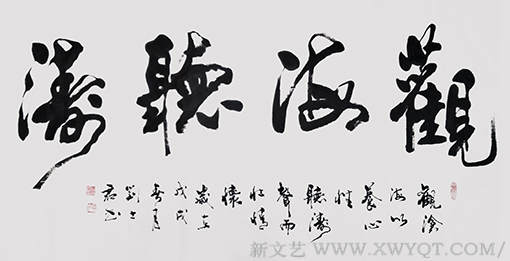 觀海聽濤
觀滄
海以
養心
性
聽濤
聲而
壯情
懷
歲在
戊戌
月
新文艺 / WWW.XWYQT.COM